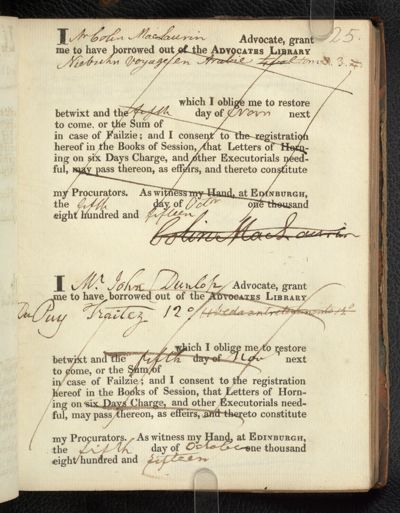 25.
I Mr Colin MacLaurin Advocate, grant
me to have borrowed out of the ADVOCATES LIBRARY
Niebuhr Voyage en Arabie tom 2. 3.
which I oblige me to restore
betwixt and the fifth day of Novr next
to come, or the Sum of
in case of Failzie; and I consent to the registration
hereof in the Books of Session, that Letters of Horn-
ing on six Days Charge, and other Executorials need-
ful, may pass thereon, as effeirs, and thereto constitute
my Procurators. As witness my Hand, at EDINBURGH,
the fifth day of Octor one thousand
eight hundred and fifteen
Colin MacLaurin
I Mr. John Dunlop Advocate, grant
me to have borrowed out of the ADVOCATES LIBRARY
Du Puy Traitez 12o
which I oblige me to restore
betwixt and the fifth day of Nov next
to come, or the Sum of
in case of Failzie; and I consent to the registration
hereof in the Books of Session, that Letters of Horn-
ing on six Days Charge, and other Executorials need-
ful, may pass thereon, as effeirs, and thereto constitute
my Procurators. As witness my Hand, at EDINBURGH,
the fifth day of October one thousand
eight hundred and fifteen